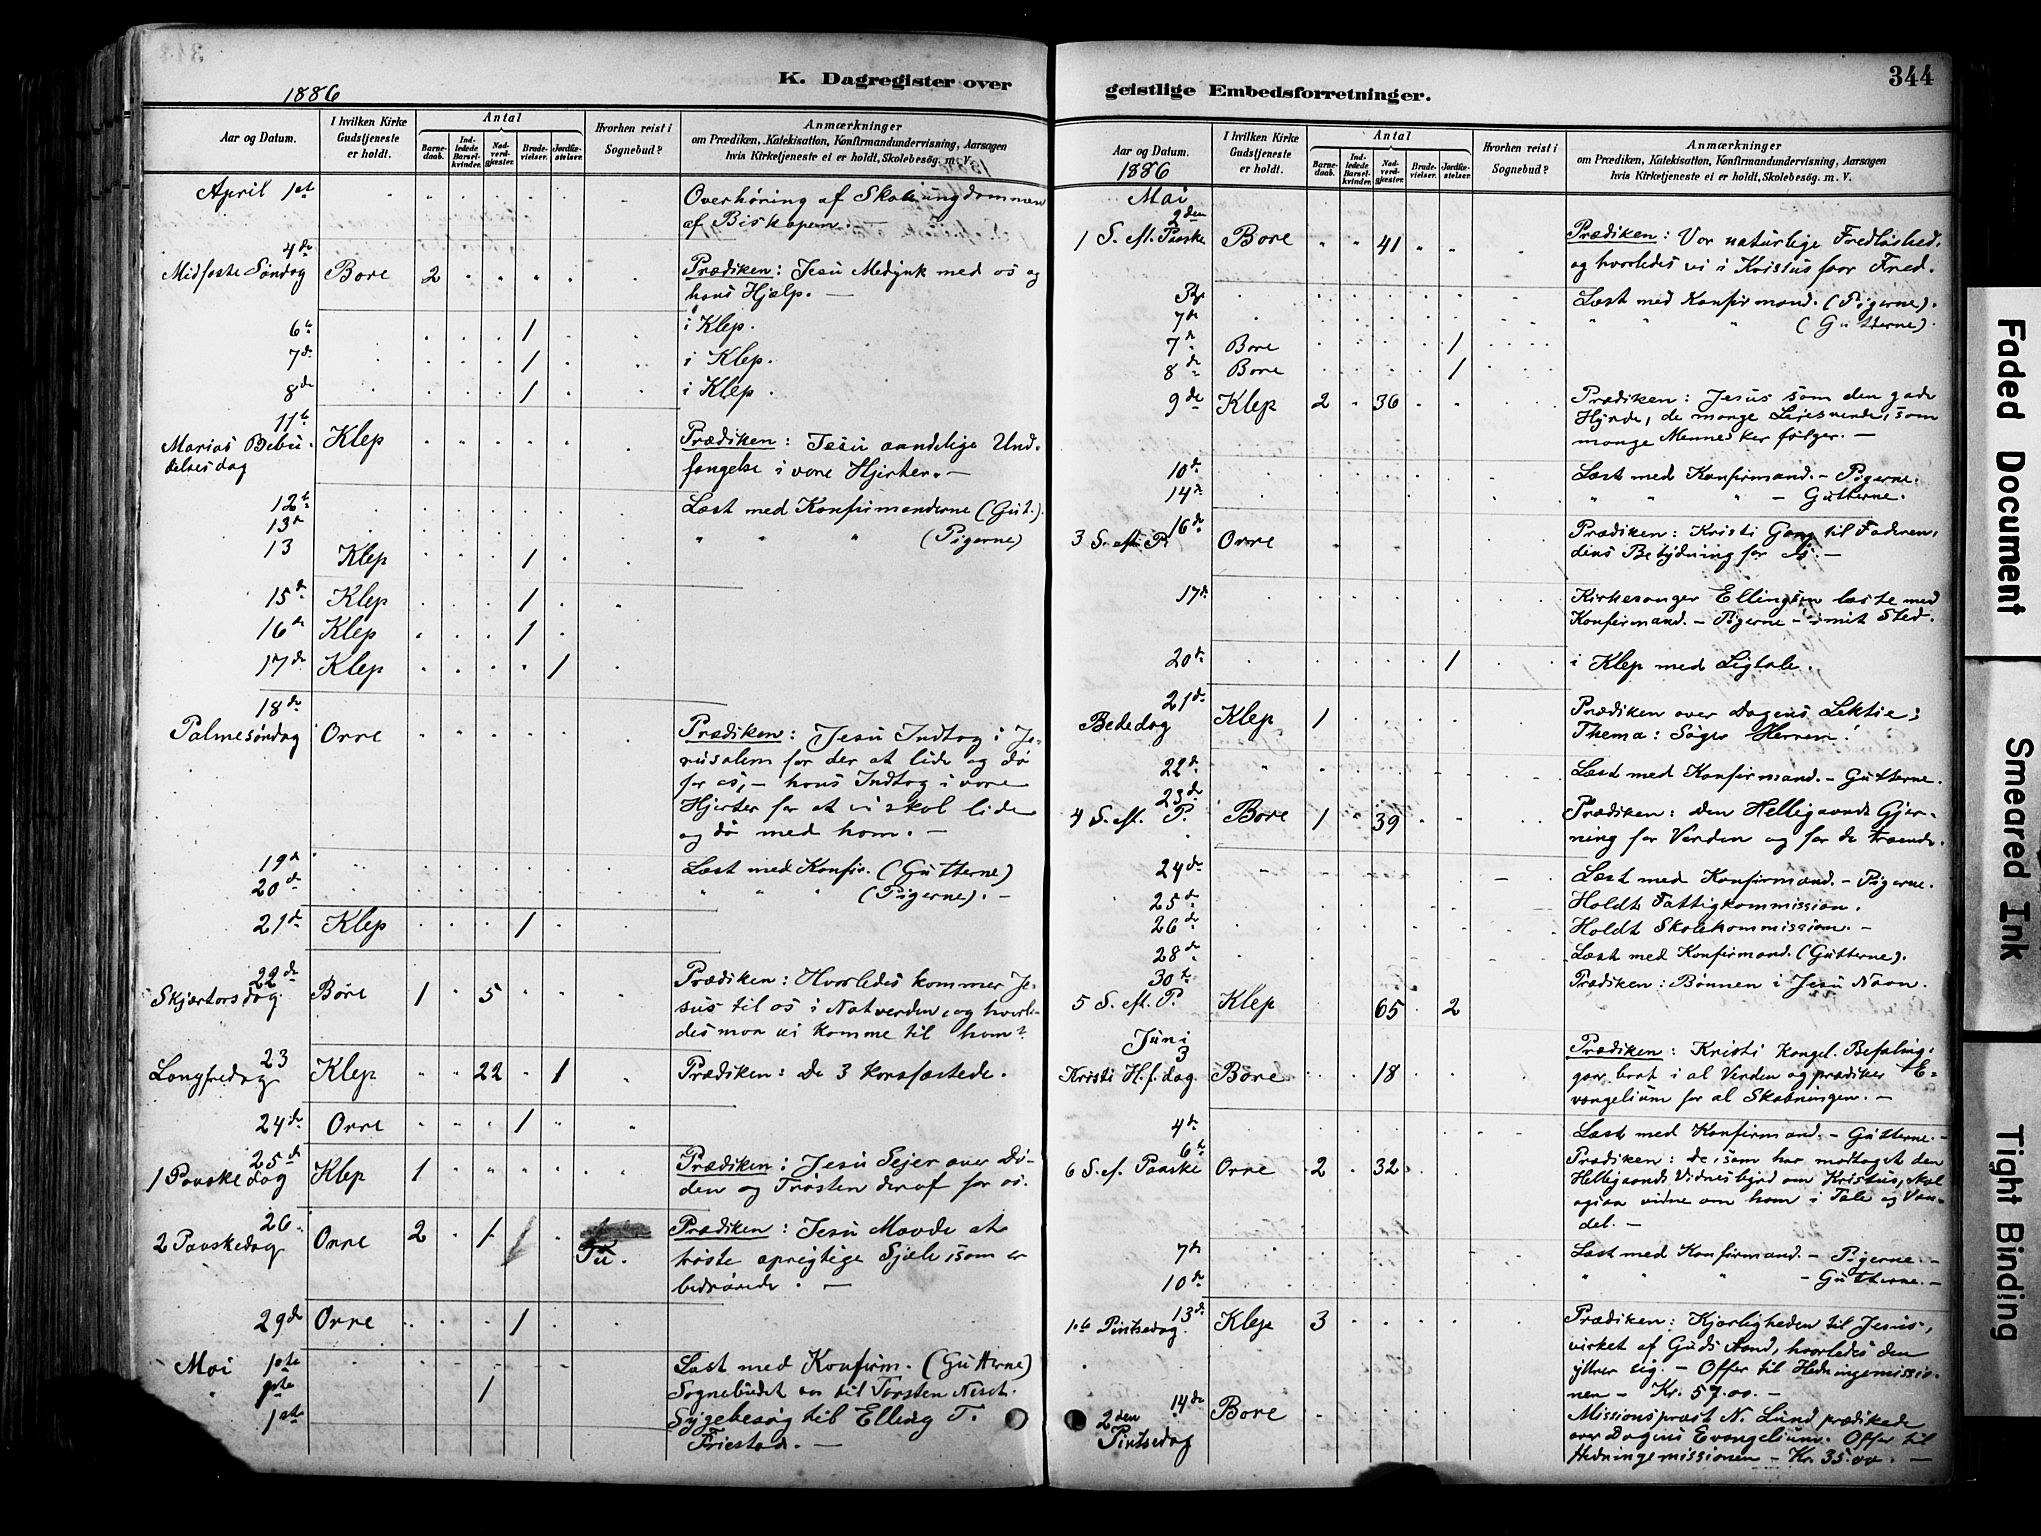 1886
K. Dagregister over
Aar og Datum.
I hvilken Kirke Gudstjeneste er holdt.
Antal
Barne-daab.
Ind-ledede Barsel-kvinder.
Nad-verd-gjæster.
Brude-vielser.
Jordfæ-stelser.
Hvorhen reist i Sognebud?
Anmærkninger
om Prædiken, Katekisation, Konfirmandundervisning, Aarsagen
hvis Kirketjeneste ei er holdt, Skolebesøg. m. V.
April 1st Overhøring af Skoleungdommen
af Biskopen. —
4de
Midfaste Søndag Bore 2 Prædiken: Jesu Medynk med os og
hans Hjælp. —
6te 1 i Klep.
7de 1 i Klep.
8de 1 i Klep.
11te
Marias Bebu- Klep Prædiken: Jesu aandelige Und-
delsesdag fangelse i vore Hjerter. —
12te Læst med Konfirmanderne (Gut.)
13de " " " (Pigerne)
13 Klep 1
15de Klep 1
16de Klep 1
17de Klep 1
18de
Palmesøndag Orre Prædiken: Jesu Indtog i Je-
rusalem for der at lide og dø
for os, — hans Indtog i vore
Hjerter for at vi skal lide
og dø med ham. —
19de Læst med Konfir. (Gutterne)
20de " " " (Pigerne). —
21de Klep 1
22de
Skjærtorsdag Bore 1 5 Prædiken: Hvorledes kommer Je-
sus til os i Natverden, og hvorle-
des maa vi komme til ham?
23
Langfredag Klep 22 1 Prædiken: De 3 Korsfæstede.
24de Orre 1
25de
1 Paaskedag Klep 1 Prædiken: Jesu Sejer over Dø-
den og Trøsten deraf for os.
26
2 Paaskedag Orre 2 1 Tu. Prædiken: Jesu Maade at
trøste oprigtige Sjæle, som er
bedrøvede. —
29de Orre 1
Mai 1ste Læst med Konfirm. (Gutterne)
1ste 1 Sognebudet var til Torsten
1ste Sygebesøg til Elling T.
Friestad. —
geistlige Embedsforretninger.
344
Aar og Datum.
1886
I hvilken Kirke Gudstjeneste er holdt.
Antal
Barne-daab.
Ind-ledede Barsel-kvinder.
Nad-verd-gjæster.
Brude-vielser.
Jordfæ-stelser.
Hvorhen reist i Sognebud?
Anmærkninger
om Prædiken, Katekisation, Konfirmandundervisning, Aarsagen
hvis Kirketjeneste ei er holdt, Skolebesøg. m. V.
Mai
2den
1 S. eft. Paaske Bore 41 Prædiken: Vor naturlige Fredløshed,
og hvorledes vi i Kristus faar Fred.
3die Læst med Konfirmand. (Pigerne).
7de " " " (Gutterne).
7de Bore 1
8de Bore 1
9de Klep 2 36 Prædiken: Jesus som den gode
Hyrde, de mange Lejesvende, som
mange Mennesker følger. —
10de Læst med Konfirmand. — Pigerne.
14de " " " — Gutterne.
16de
3 S. eft. P. Orre Prædiken: Kristi Gang til Faderen,
dens Betydning for
17de Kirkesanger Ellingsen læste med
Konfirmand. — Pigerne — i mit Sted.
20de 1 i Klep med Ligtale.
21de
Bededag Klep 1 Prædiken over Dagens Lektie;
Thema: Søger Herren!
22de Læst med Konfirmand. — Gutterne.
23de
4 S. eft. P. Bore 1 39 Prædiken: Den Helligaands Gjer-
ning for Verden og for de troende.
24de Læst med Konfirmand. — Pigerne.
25de Holdt Fattigkommission.
26de Holdt Skolekommission. —
28de Læst med Konfirmand. (Gutterne).
30te Prædiken: Bønnen i Jesu Navn.
5 S. eft. P. Klep 65 2
Juni
3 Prædiken: Kristi Kongel. Befaling:
Kristi H. f. dag Bore 18 gaar bort i al Verden og prædiker E-
vangelium for al Skabningen. —
4de Læst med Konfirmand. — Gutterne. —
6te
6 S. ef. Paaske Orre 2 32 Prædiken: De, som har modtaget den
Helligaands Vidnesbyrd om Kristus, skal
ogsaa vidne om ham i Tale og Van-
del. —
7de Læst med Konfirmand. — Pigerne. —
10de " " " — Gutterne. —
13de
1ste Pintsedag. Klep 3 Prædiken: Kjærligheden til Jesus,
virket af Guds Aand, hvorledes den
ytrer sig. — Offer til Hedningemissio-
nen — Kr. 57.00. —
14de
2den Bore Missionsprest N. Lund prædikede
Pintsedag over Dagens Evangelium. Offer til
Hedningemissionen — Kr. 35.00. —
Faded Document
Smeared Ink
Tight Binding